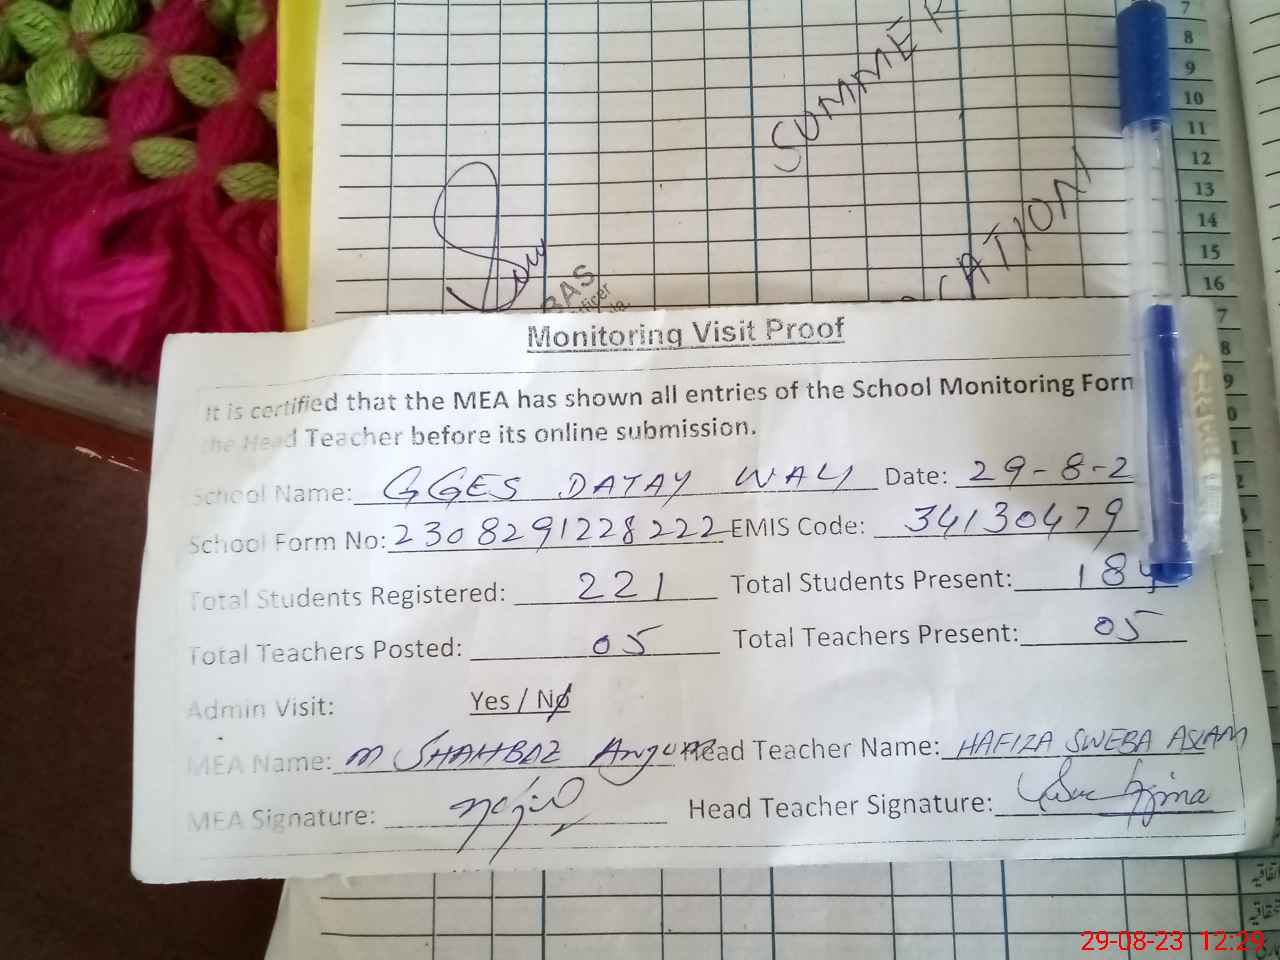 7
8
9
10
11
12
13
14
15
16
SUMMER
CATION
BAS
ficer
Monitoring Visit Proof
It is certified that the MEA has shown all entries of the School Monitoring Form
the Head Teacher before its online submission.
School Name: GGES DATAY WALI Date: 29-8-2
School Form No: 2308291228222 EMIS Code: 34130479
Total Students Registered: 221 Total Students Present: 184
Total Teachers Posted: 05 Total Teachers Present: 05
Admin Visit: Yes / No
MEA Name: M SHAHBAZ Anjum Head Teacher Name: HAFIZA SWEBA ASLAM
MEA Signature: Head Teacher Signature:
29-08-23 12:29